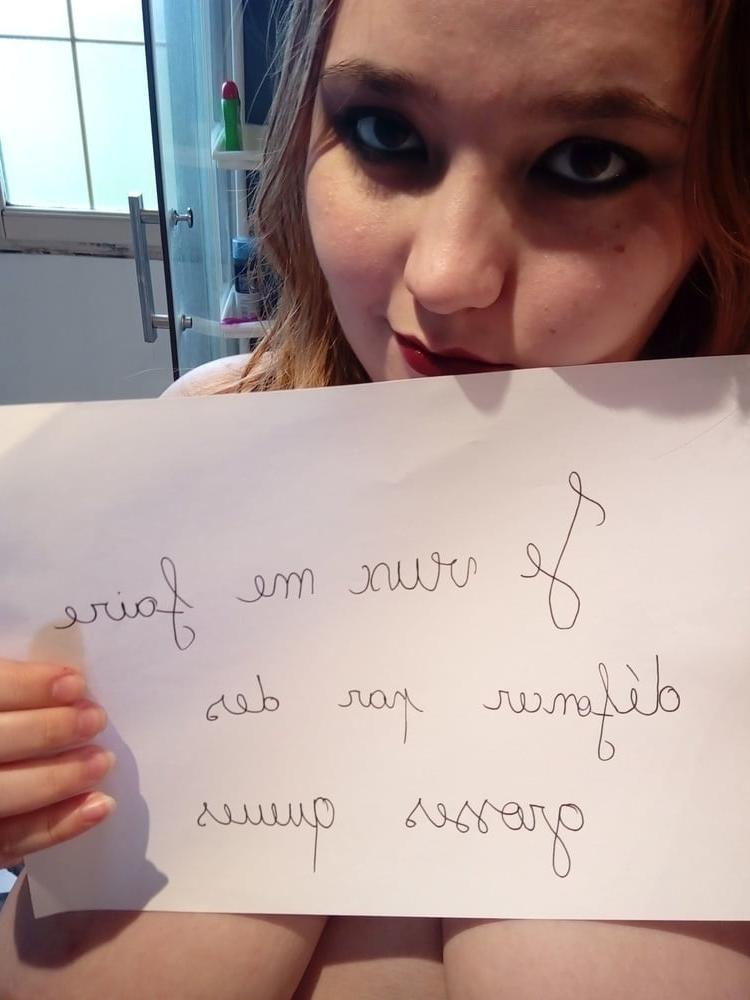 Je veux me faire
défoncer par des
grosses queues